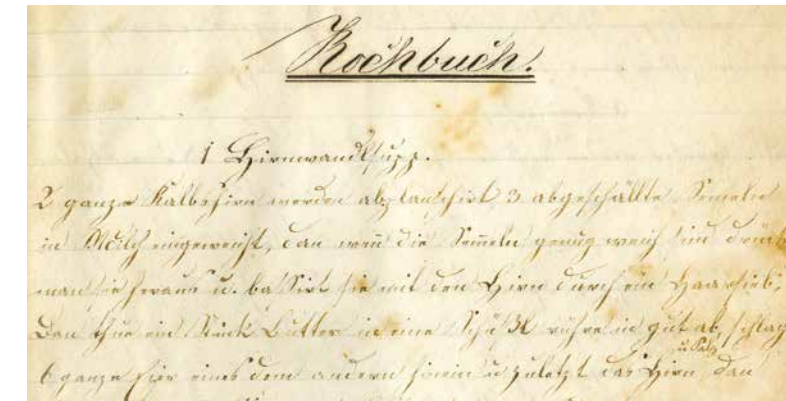 Kochbuch.
1 Hirnwandlsupp.
2 ganze Kalbshirn werden ablanschirt 3 abgeschällte Semeln
in Milch eingeweicht, dan wen die Semeln genug weich sind drückt
man sie heraus u. bassirt sie mit den Hirn durch ein Haarsieb,
Dan thue ein Stück Butter in eine rühre in gut ab, schlag
u Salz
6 ganze Eier eines dem andern hinein u zuletzt das Hirn, Dan